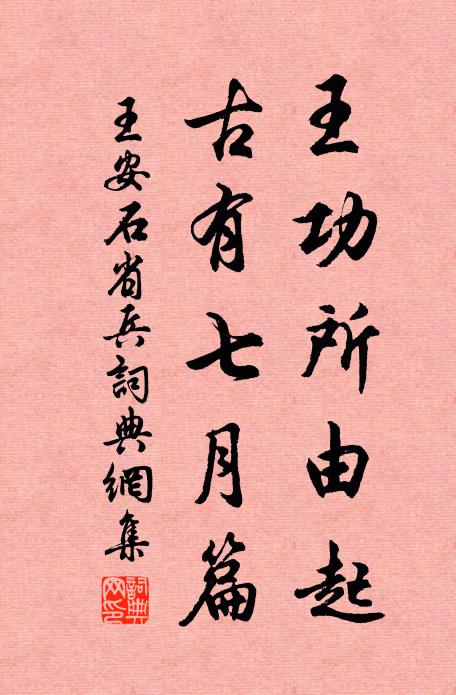 王功所由起
古有七月篇
王安石省兵詞典網集
詞典
網印